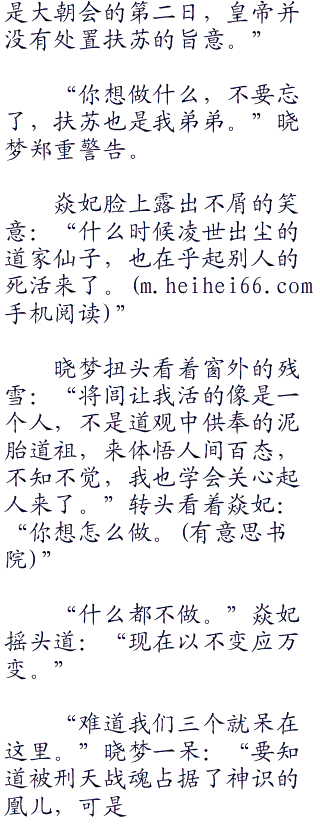 是大朝会的第二日，皇帝并
没有处置扶苏的旨意。”
“你想做什么，不要忘
了，扶苏也是我弟弟。”晓
梦郑重警告。
焱妃脸上露出不屑的笑
意：“什么时候凌世出尘的
道家仙子，也在乎起别人的
死活来了。(m.heihei66.com
手机阅读)”
晓梦扭头看着窗外的残
雪：“将闾让我活的像是一
个人，不是道观中供奉的泥
胎道祖，来体悟人间百态，
不知不觉，我也学会关心起
人来了。”转头看着焱妃：
“你想怎么做。(有意思书
院)”
“什么都不做。”焱妃
摇头道：“现在以不变应万
变。”
“难道我们三个就呆在
这里。”晓梦一呆：“要知
道被刑天战魂占据了神识的
凰儿，可是